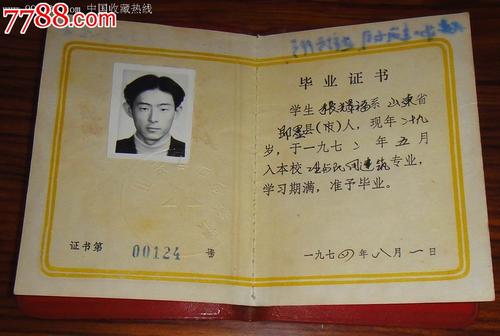 7788.com
中国收藏热线
证书第 00124 号
毕业证书
学生 张耀福 系 山东省
即墨县(市)人，现年 二十九
岁，于一九七二年五月
入本校 工业与民用建筑 专业，
学习期满，准予毕业。
一九七四年八月一日